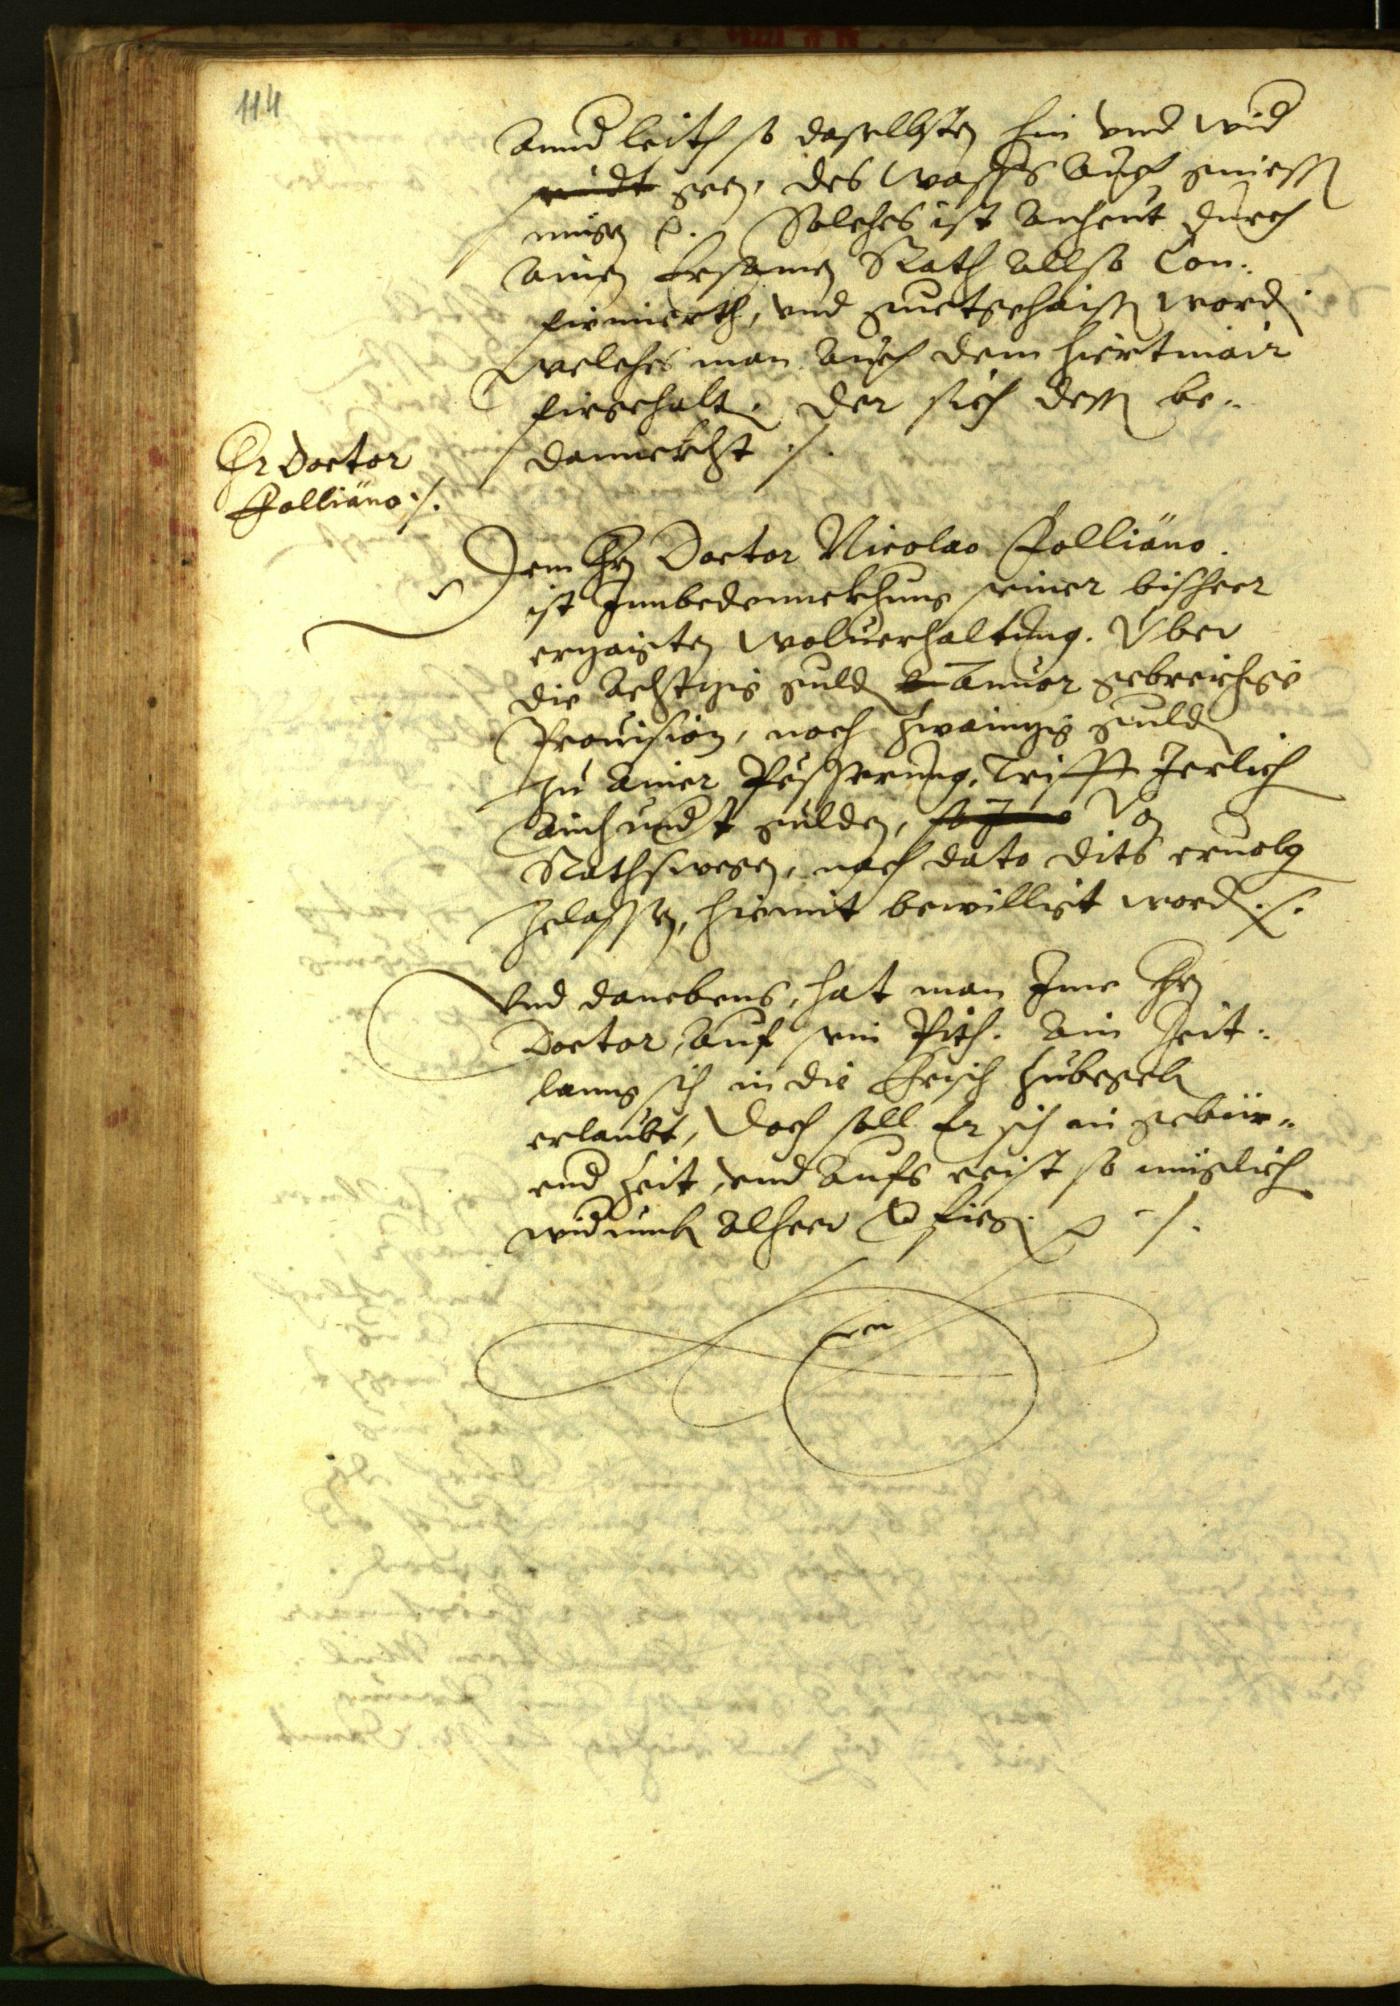 114
annd leith so daselbsten hin vnd wid
geen, des wassers auch geniessen
mügen. Solches ist anheut durch
ainen Ersamen Rath allso Con:
firmierth, vnd guetgehaissen worden
welches man auch dem Hiertmair
firgehalten. Der sich dessen be:
dannckht ./.
Hr Doctor
Polliäno ./.
Dem Hrn Doctor Nicolao Polliäno.
ist Innbedennckhung seiner bisheer
erzaigten wolverhaltung. Über
die achtzig gulden zuuor gebreichige
Prouision, noch zwainzig gulden
zu ainer Pesserung, Trifft Jerlich
ainhundt gulden, Von
Rathswegen, nach dato dits ervolgen
zelassen, hiemit bewilligt worden ./.
Vnd danebens, hat man Ime Hrn
Doctor, auf sein Pith. ain Zeit:
lanng sich in die Frisch zubegeben
erlaubt, Doch soll Er sich in gebür:
end Zeit, vnd aufs eeist so müglich
widumben alheer verfiegen ./.